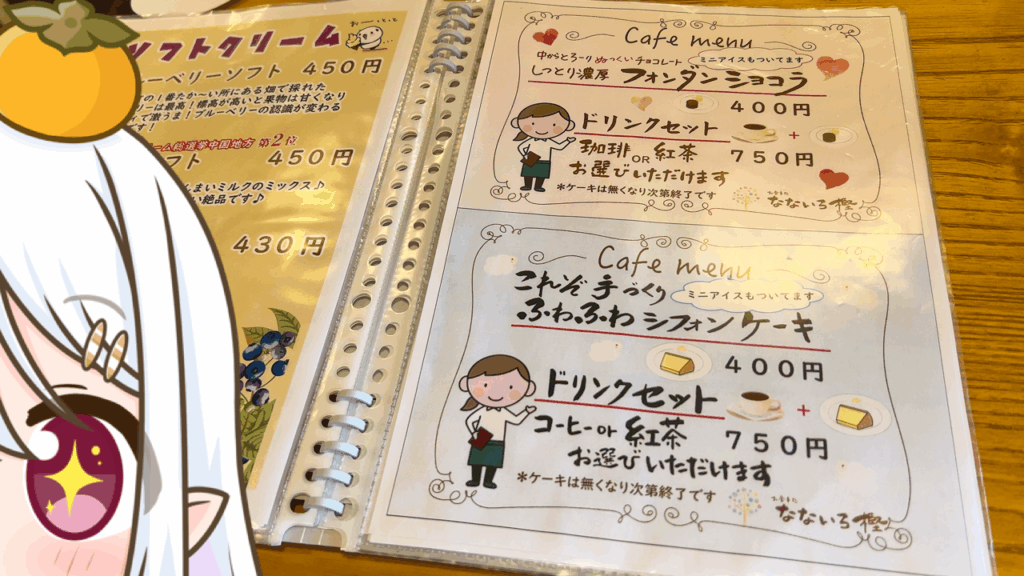 おーいっち
ソフトクリーム
ルーベリーソフト 450円
の！番たか〜い所にある畑で採れた
リーは最高！標高が高いと果物は甘くなり
って激うま！ブルーベリーの認識が変わる
す！
ーム総選挙中国地方 第2位
フト 450円
んまいミルクのミックス♪
い絶品です♪
430円
Cafe menu
中からとろーり ぬっくい チョコレート
ミニアイスもついてます
しっとり濃厚 フォンダンショコラ
400円
ドリンクセット
+
珈琲 OR 紅茶 750円
お選びいただけます
*ケーキは無くなり次第終了です
なないろ樫
Cafe menu
これぞ 手づくり
ミニアイスもついてます
ふわふわ シフォンケーキ
400円
ドリンクセット
+
コーヒー or 紅茶 750円
お選びいただけます
*ケーキは無くなり次第終了です
なないろ樫